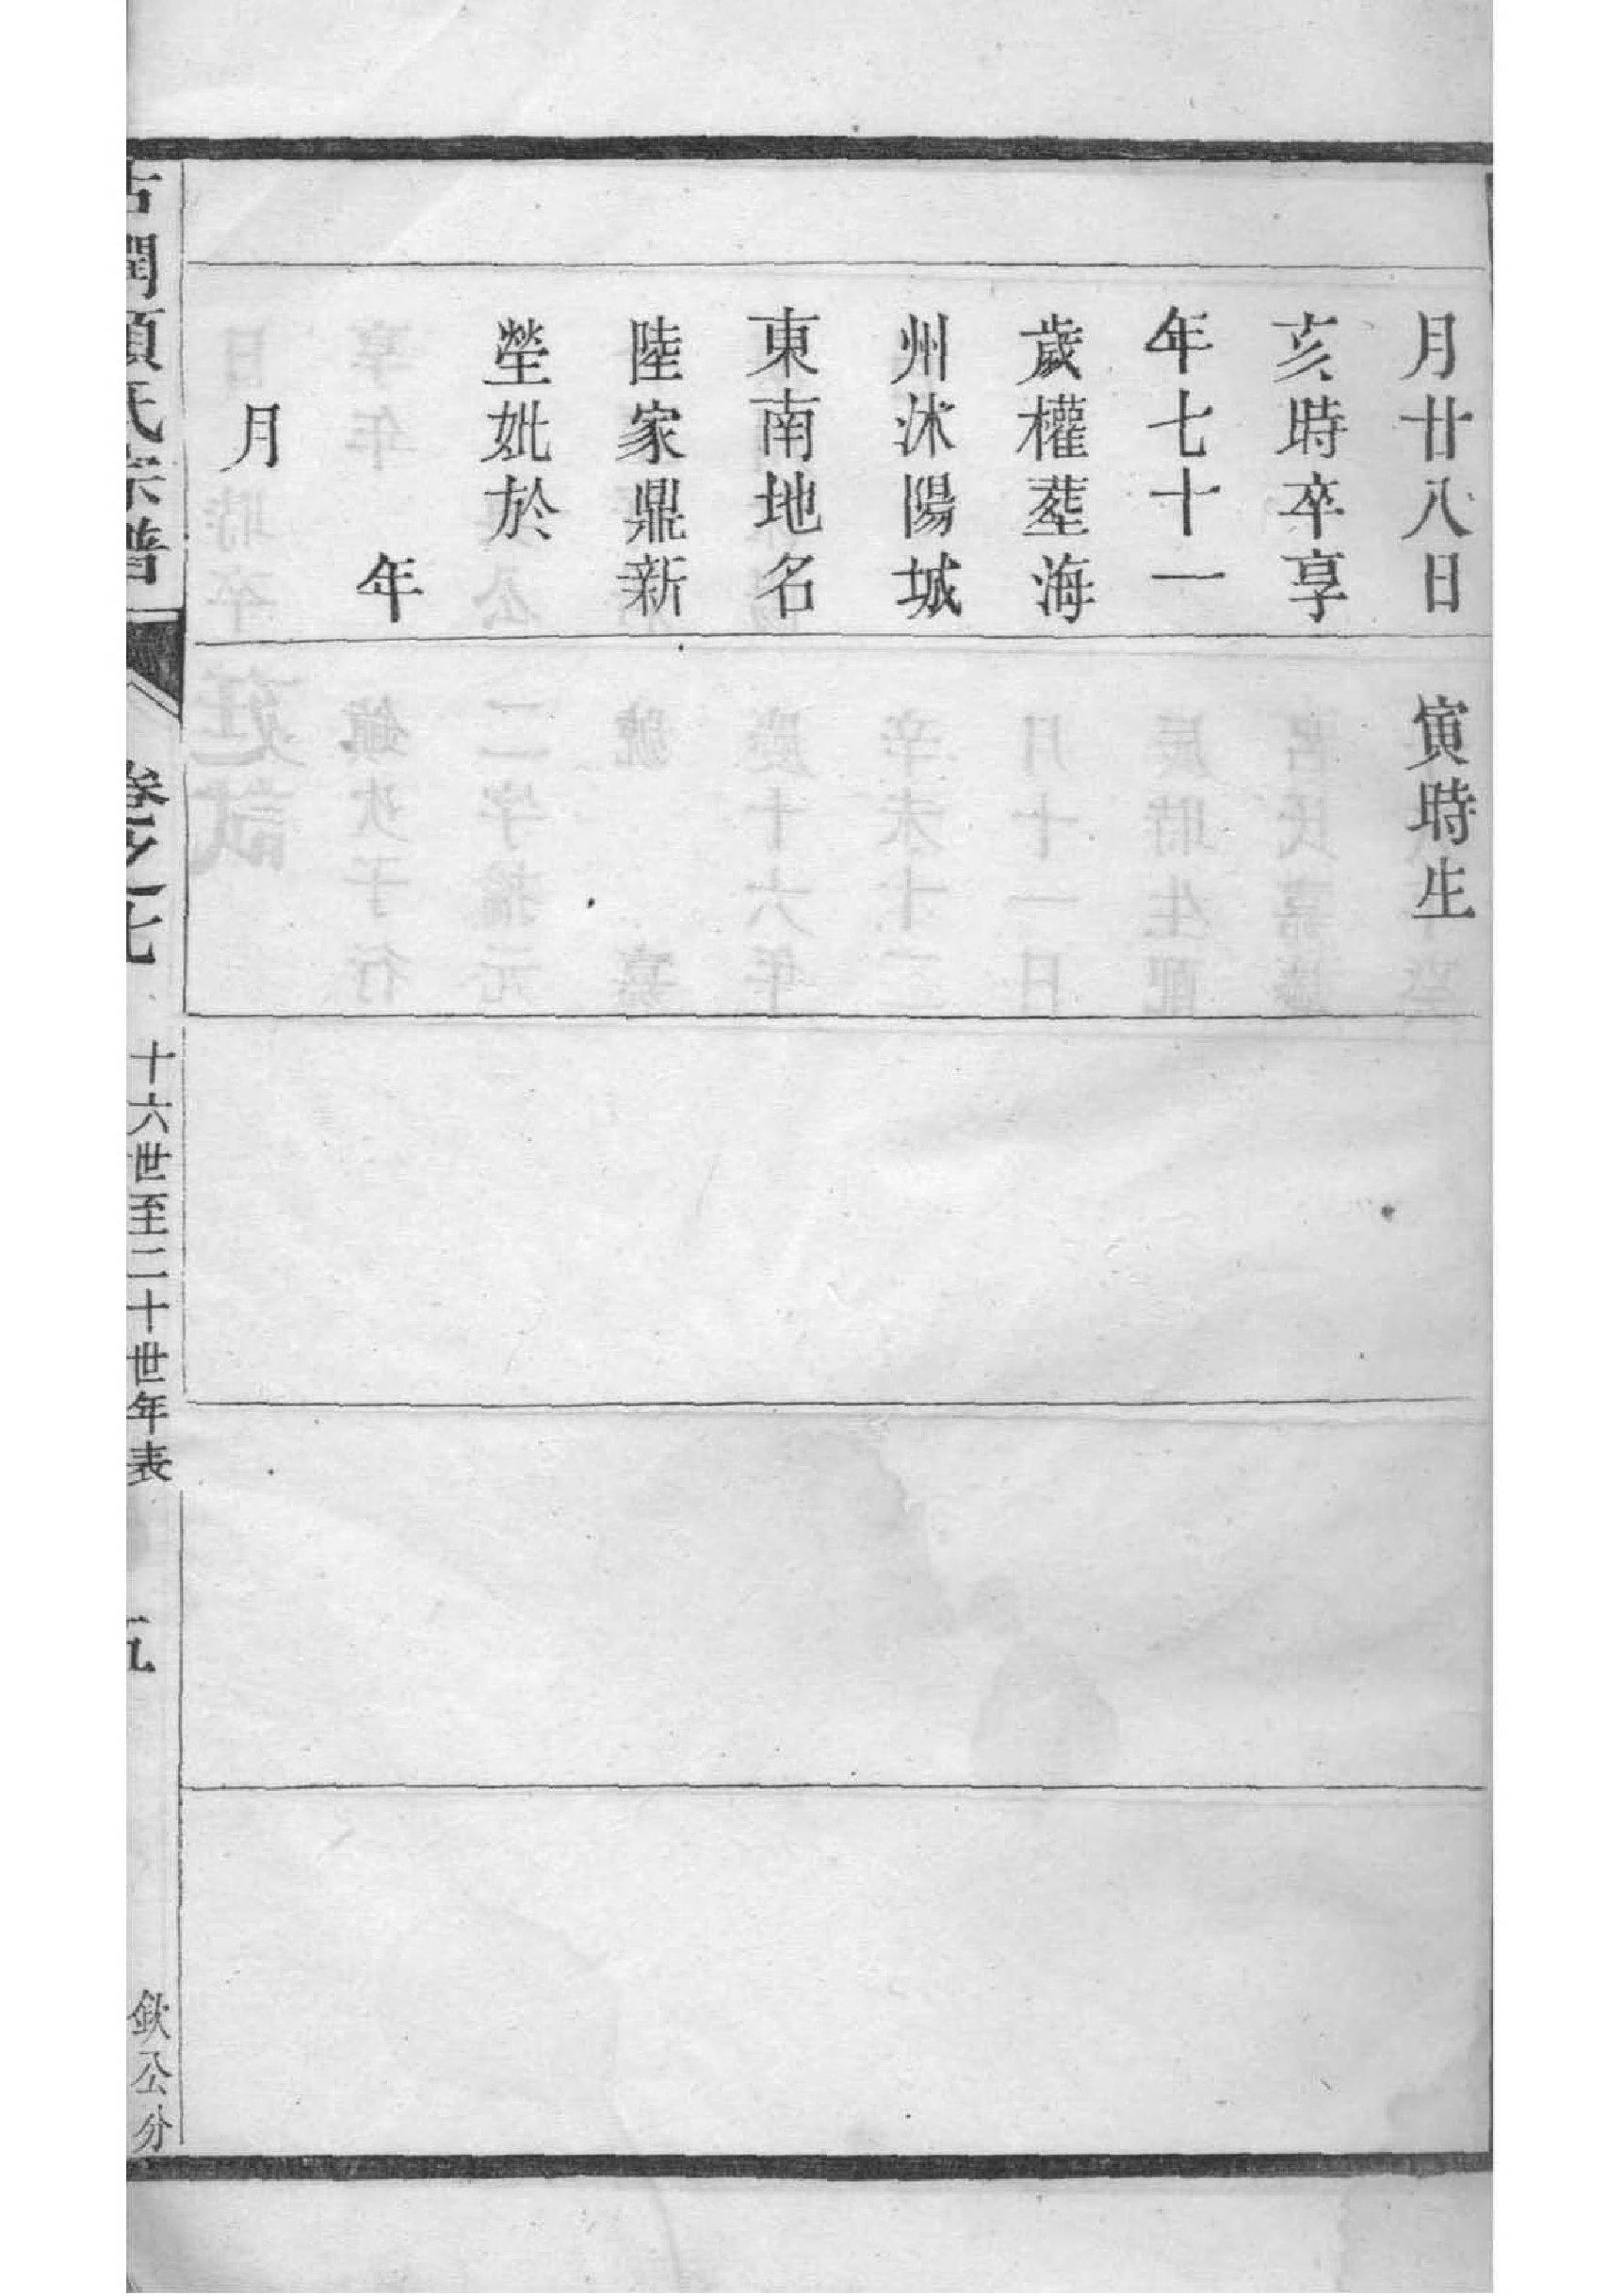 月廿八日
亥時卒享
年七十一
歲權塟海
州沭陽城
東南地名
陸家鼎新
塋妣於
年
月
寅時生
古潤項氏宗譜
卷之七
十六世至二十世年表
五
欽公分